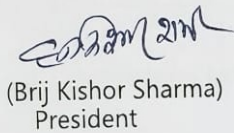 (Brij Kishor Sharma)
President